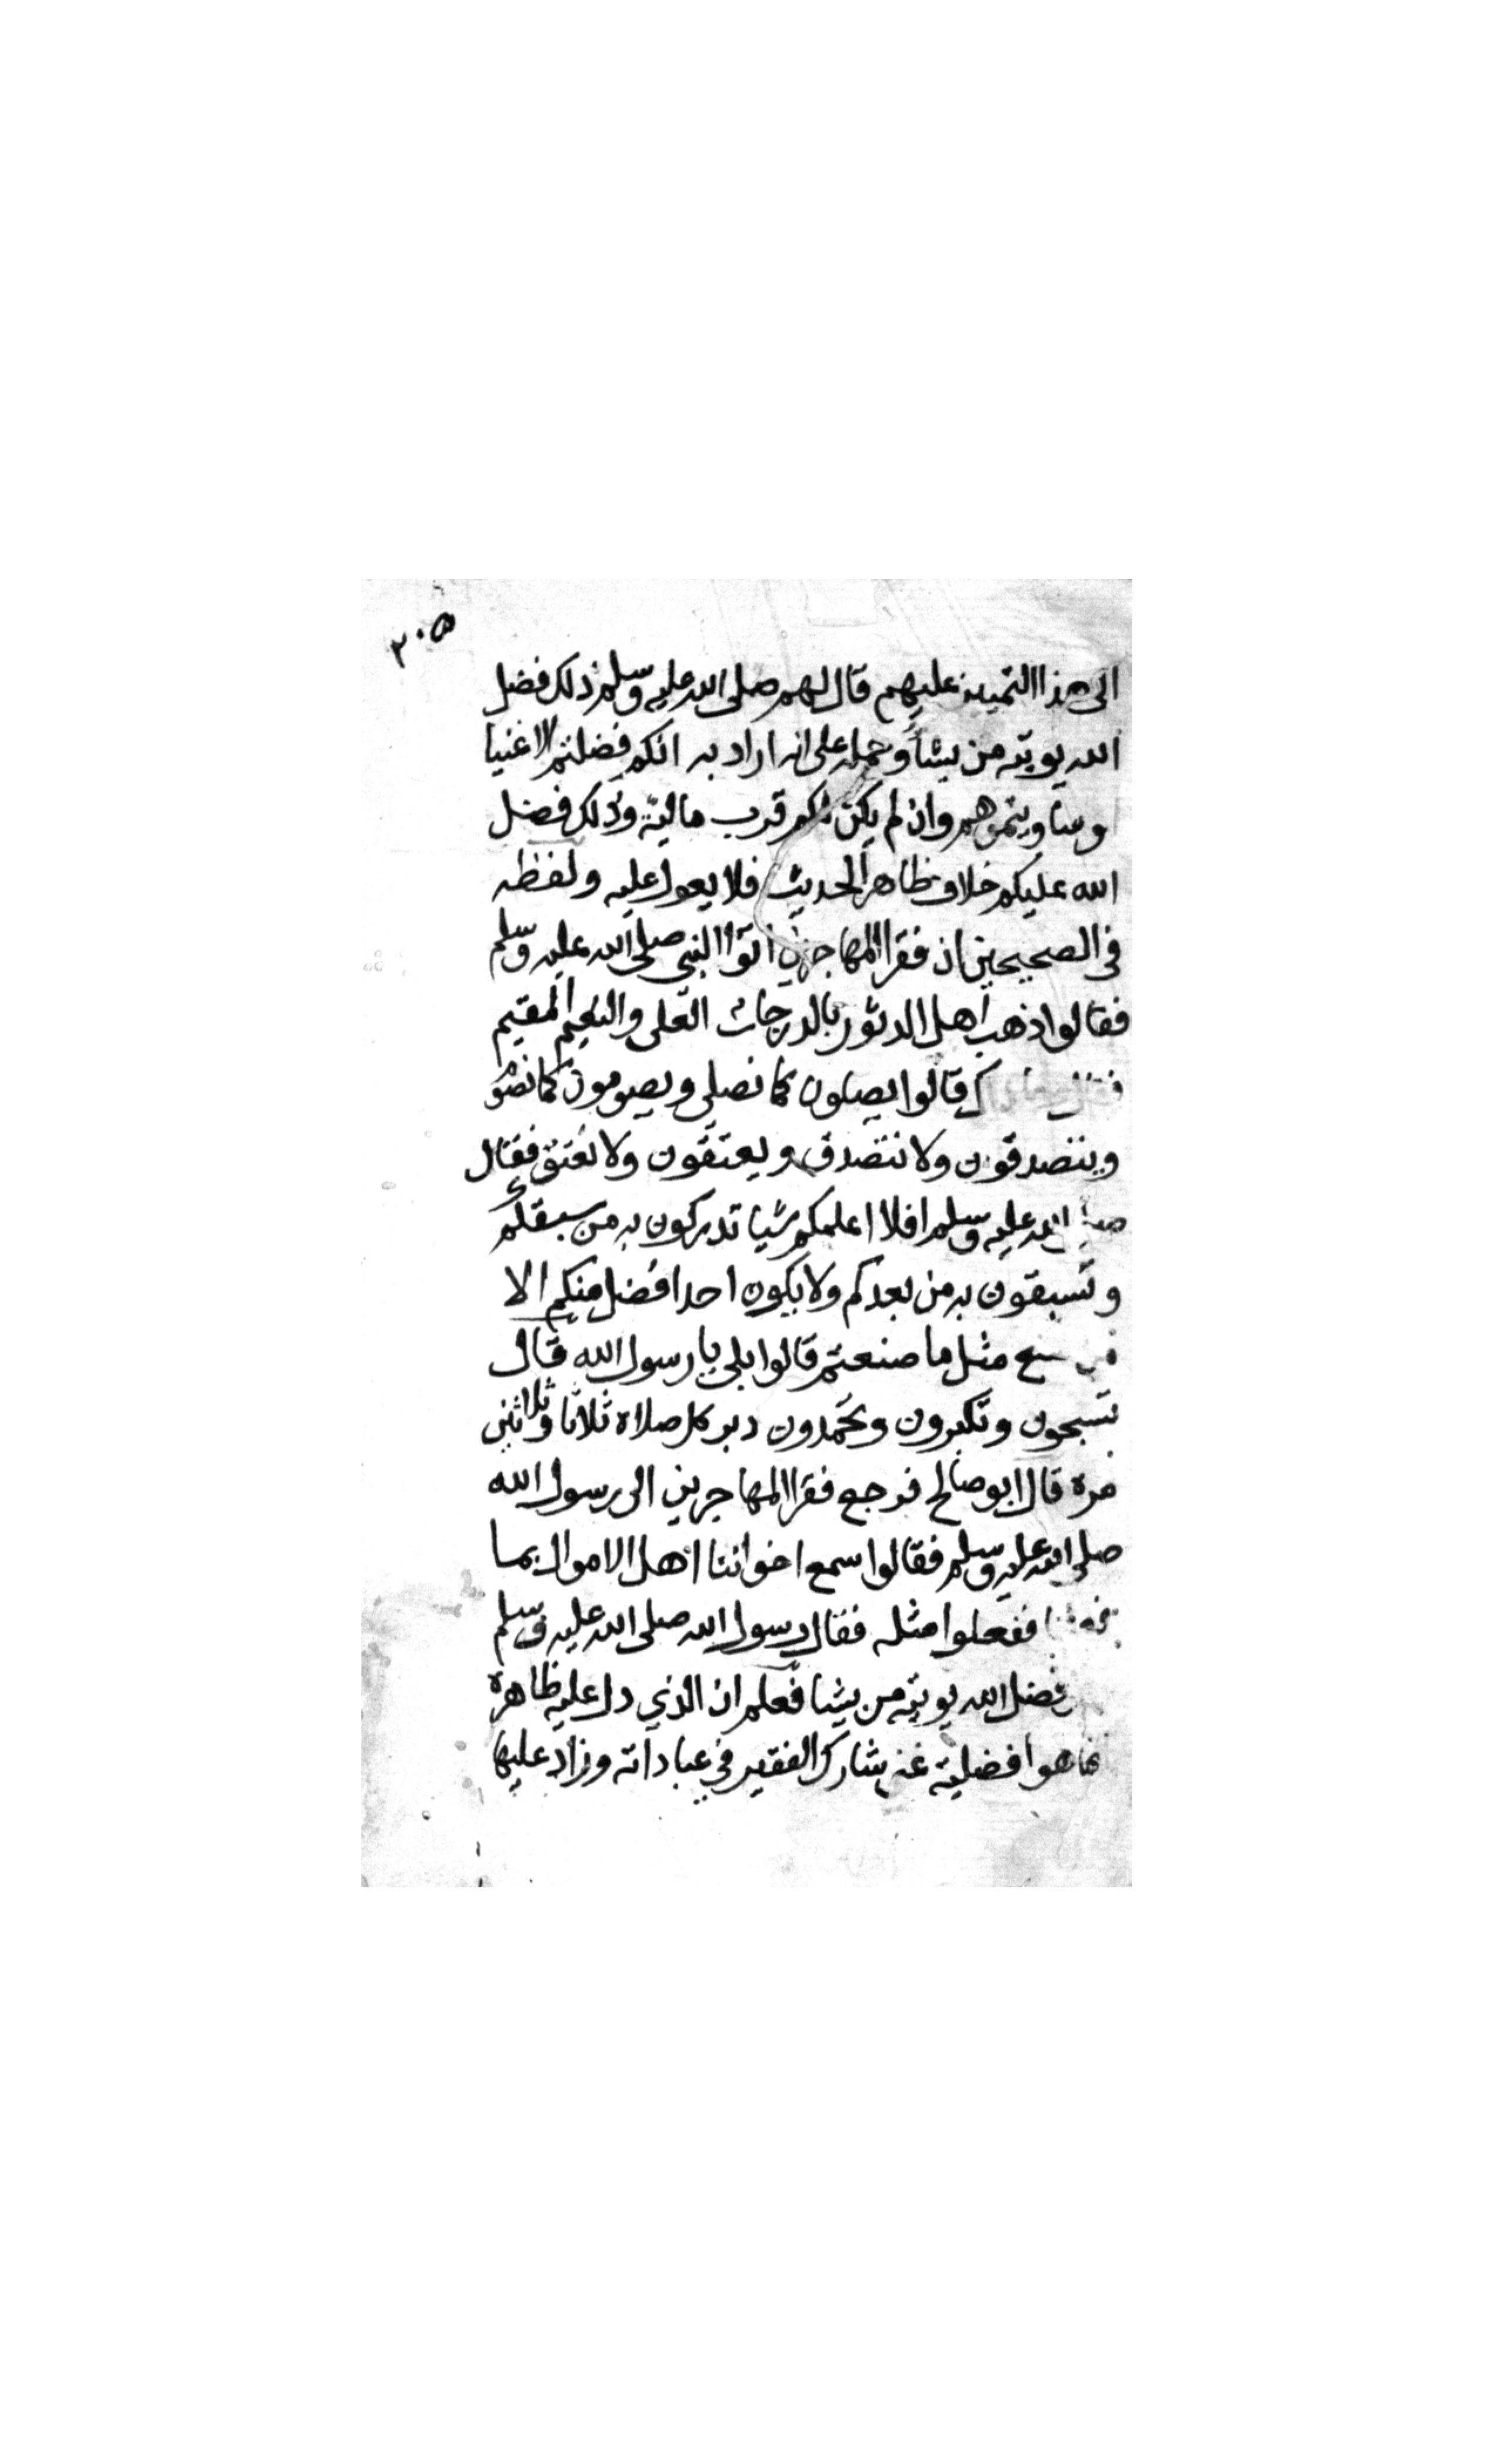 ٣٠٥
الى هذا التمييز عليهم قال لهم صلى الله عليه وسلم ذلك فضل
الله يوتيه من يشأ وحمله على انه اراد به انكم فضلتم الاغنيا
وساويتموهم وان لم يكن لكم قرب مالية وذلك فضل
الله عليكم خلاف ظاهر الحديث فلا يعول عليه ولفظه
في الصحيحين ان فقرا المهاجرين اتوا النبي صلى الله عليه وسلم
فقالوا ذهب اهل الدثور بالدرجات العلى والنعيم المقيم
قالوا يصلون كما نصلي ويصومون كما نصوم
ويتصدقون ولا نتصدق ويعتقون ولا نعتق فقال
صلى الله عليه وسلم افلا اعلمكم شيا تدركون به من سبقكم
وتسبقون به من بعدكم ولا يكون احد افضل منكم الا
من صنع مثل ما صنعتم قالوا بلى يا رسول الله قال
تسبحون وتكبرون وتحمدون دبر كل صلاة ثلاثا وثلاثين
مرة قال ابو صالح فرجع فقرا المهاجرين الى رسول الله
صلى الله عليه وسلم فقالوا سمع اخواننا اهل الاموال بما
ففعلوا مثله فقال رسول الله صلى الله عليه وسلم
فضل الله يوتيه من يشا فعلم ان الذي دل عليه ظاهره
انما هو افضلية غني شارك الفقير في عباداته وزاد عليها